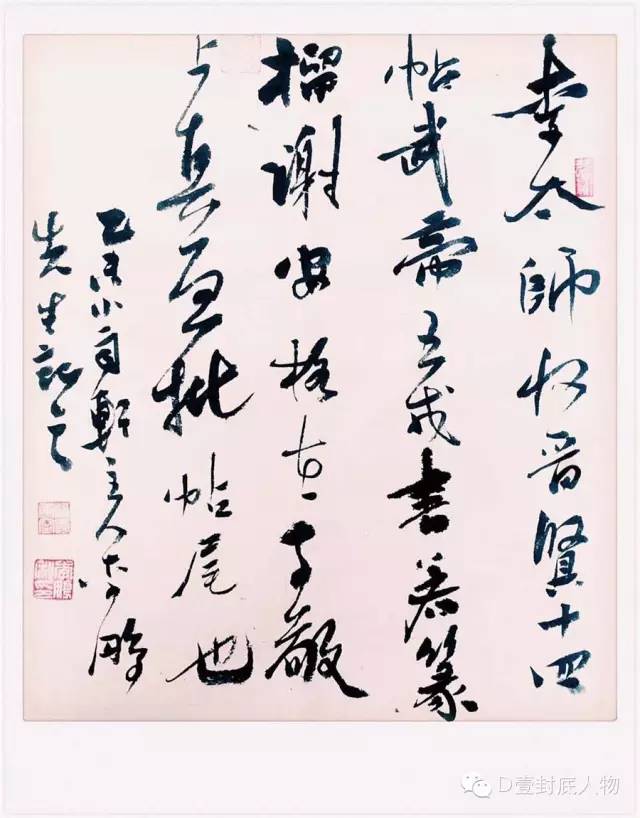 李太師收晋賢十四
帖武帝王戎書若篆
榴謝安格在子敬
上真宜批帖尾也
乙未小 軒主人李鵬
先生記之
D壹封底人物